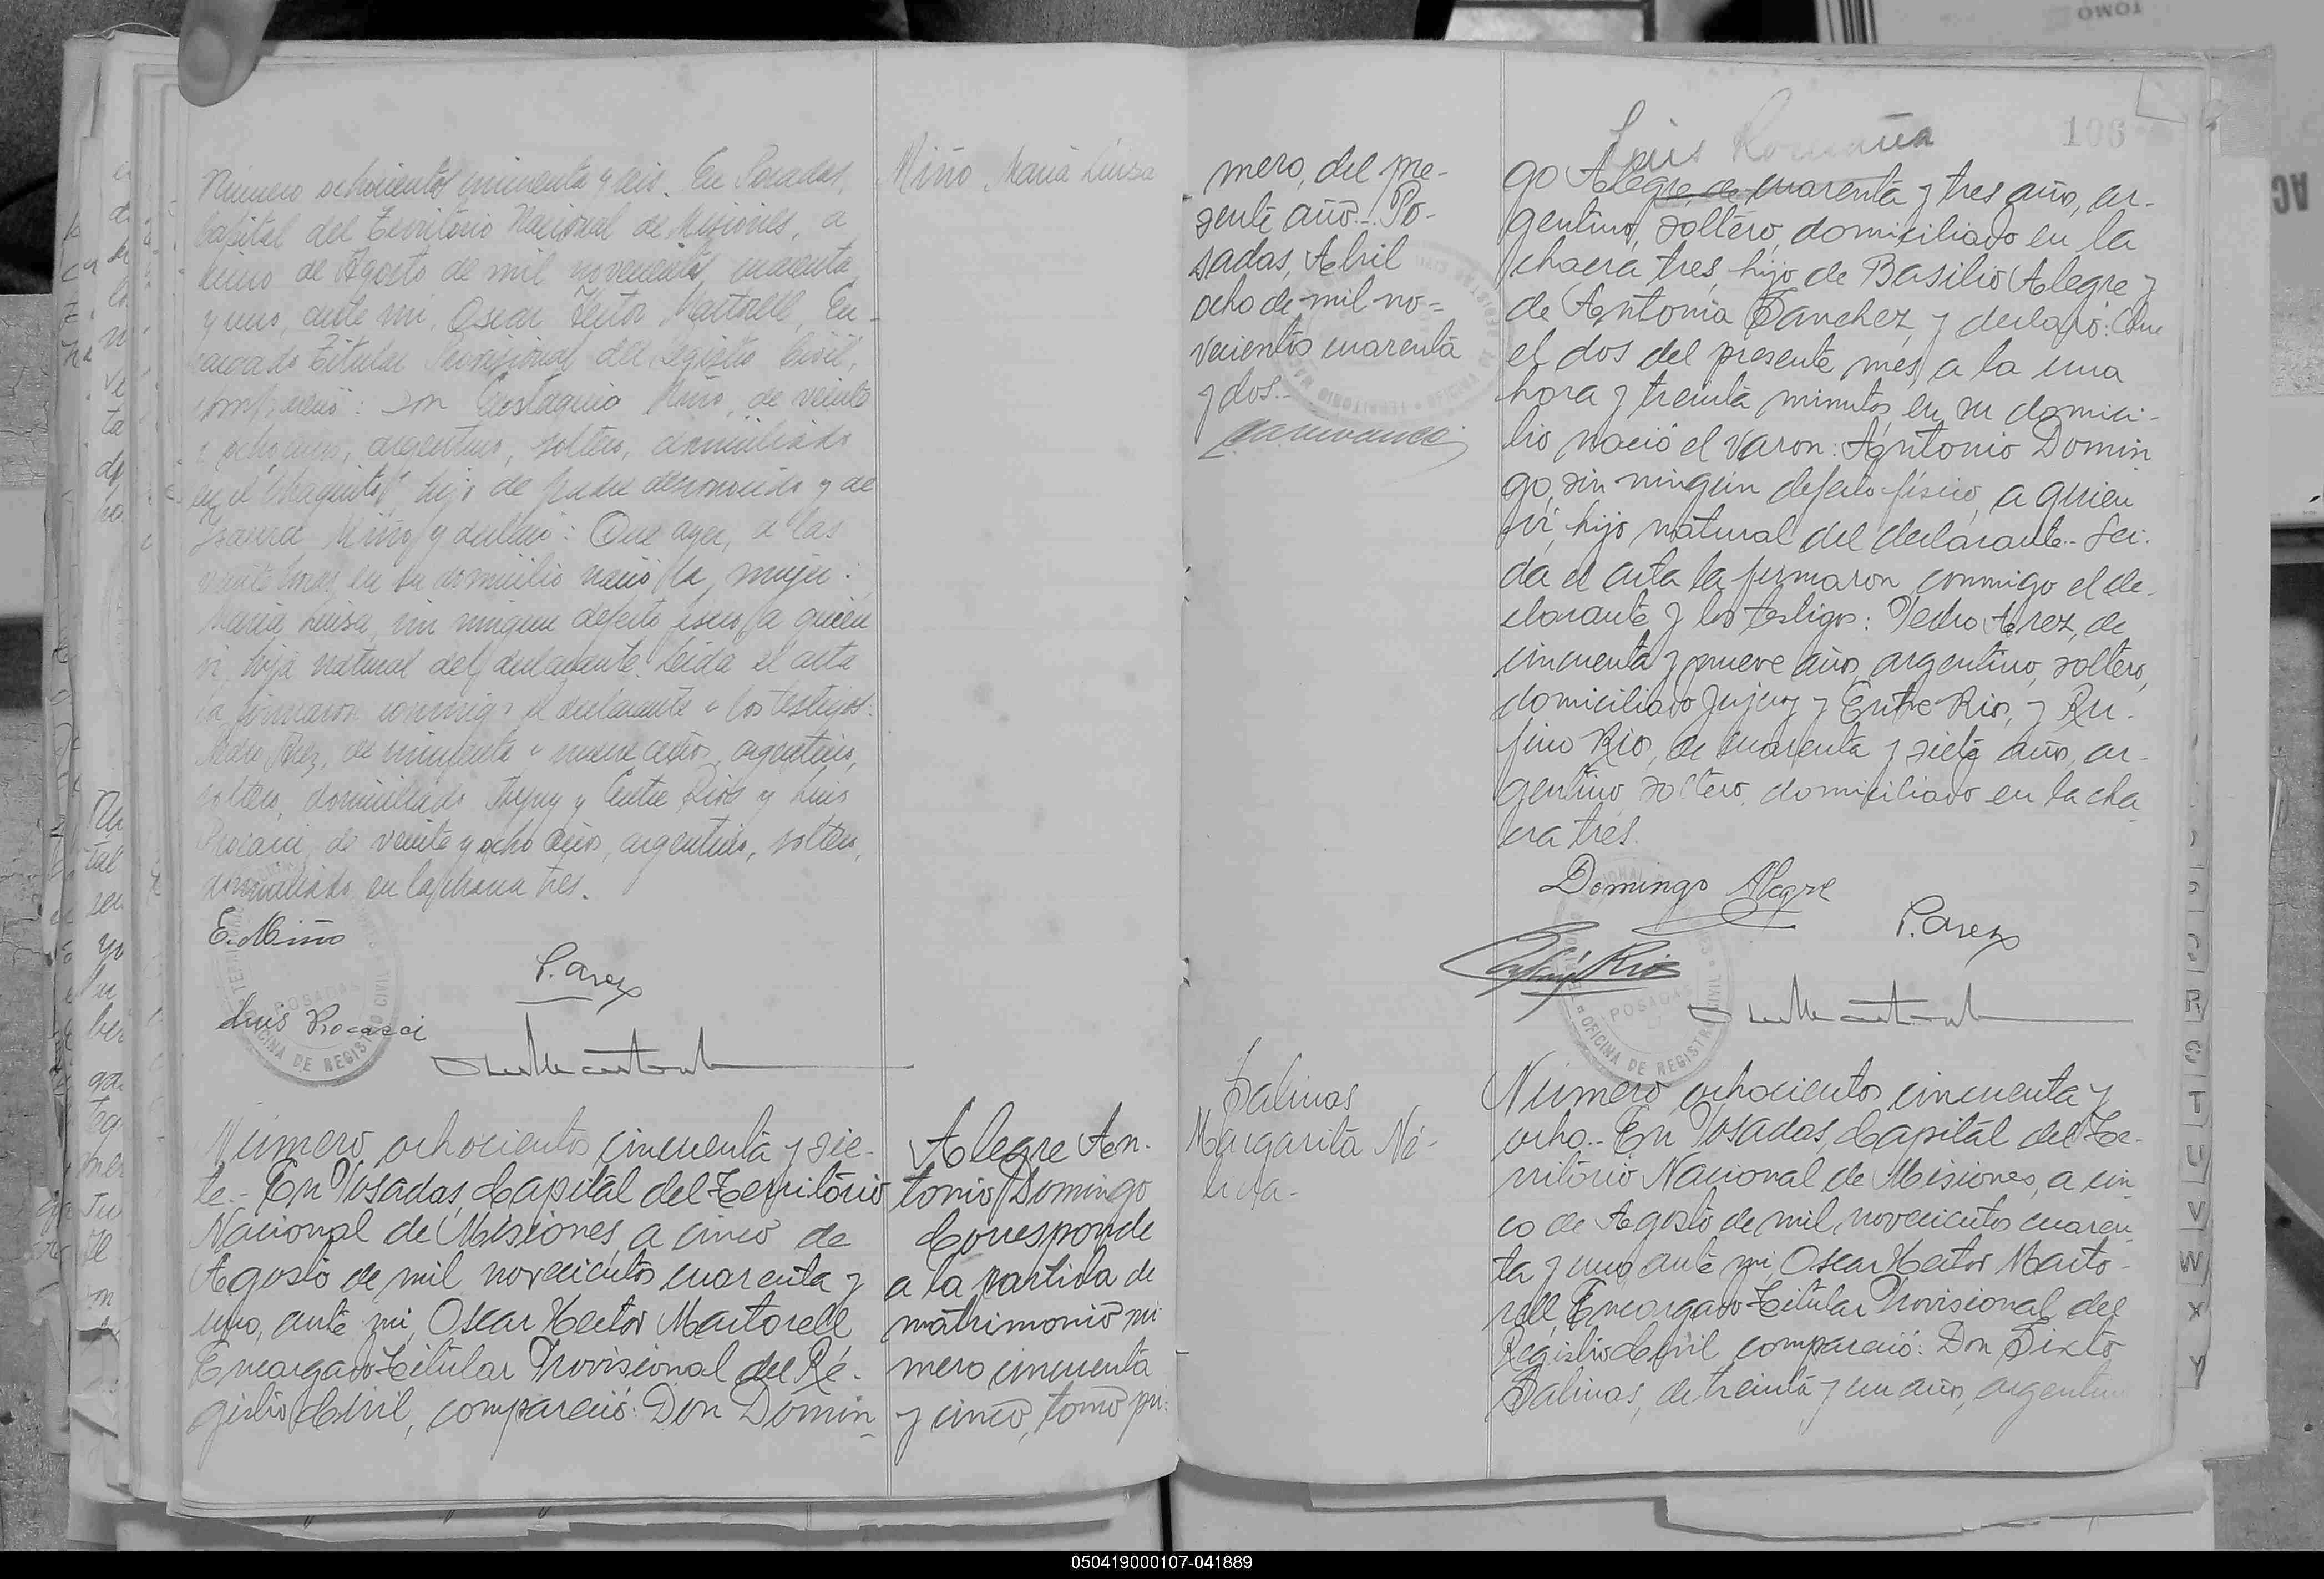 Número ochocientos cincuenta y seis. En Posadas,
Capital del Territorio Nacional de Misiones, a
cinco de Agosto de mil novecientos cuarenta
y uno, ante mi, Oscar Hector Martorell, En-
cargado Titular Provisional del Registro Civil,
compareció: Don Eustaquio Miño, de veinte
y ocho años, argentino, soltero, domiciliado
en el "Chaquito", hijo de padre desconocido y de
Miño y declaró: Que ayer, a las
veinte horas en su domicilio nació la mujer:
María Luisa, sin ningun defecto fisico, a quien
vi, hija natural del declarante. Leida el acta
la firmaron conmigo el declarante y los testigos:
Pedro Arez, de cincuenta y nueve años, argentino,
soltero, domiciliado Jujuy y Entre Rios y Luis
Procacci, de veinte y ocho años, argentino, soltero,
domiciliado en la chacra tres.
E. Miño
P. Arez
Luis Procacci
Miño María Luisa
Número ochocientos cincuenta y sie-
te.- En Posadas, Capital del Territorio
Nacional de Misiones, a cinco de
Agosto de mil novecientos cuarenta y
uno, ante mi, Oscar Hector Martorell
Encargado Titular Provisional del Re-
gistro Civil, compareció: Don Domin-
Alegre An-
tonio Domingo
Corresponde
a la partida de
matrimonio nú
mero cincuenta
y cinco, tomo pri-
mero, del pre-
sente año.- Po-
sadas, Abril
ocho de mil no-
vecientos cuarenta
y dos.-
106
Luis
go Alegre, de cuarenta y tres años, ar-
gentino, soltero, domiciliado en la
chacra tres, hijo de Basilio Alegre y
de Antonia Sanchez, y declaró: Que
el dos del presente mes, a la una
hora y treinta minutos, en su domici-
lio nació el varon: Antonio Domin
go, sin ningún defecto físico, a quien
vi, hijo natural del declarante.- Lei-
da el acta la firmaron conmigo el de-
clarante y los testigos: Pedro Arez, de
cincuenta y nueve años, argentino, soltero,
domiciliado Jujuy y Entre Rios, y Ru-
fino Rios, de cuarenta y siete años, ar-
gentino soltero, domiciliado en la cha
cra tres.
Domingo Alegre
P. Arez
POSADAS
OFICINA DE REGISTRO CIVIL
Salinas
Margarita Né-
lida-
Número ochocientos cincuenta y
ocho.- En Posadas, Capital del Te-
rritorio Nacional de Misiones, a cin
co de Agosto de mil novecientos cuaren
ta y uno, ante mi, Oscar Hector Marto-
rell, Encargado Titular Provisional del
Registro Civil compareció: Don Sixto
Salinas, de treinta y un años, argentino
R
S
T
U
V
W
X
Y
TOMO
050419000107-041889